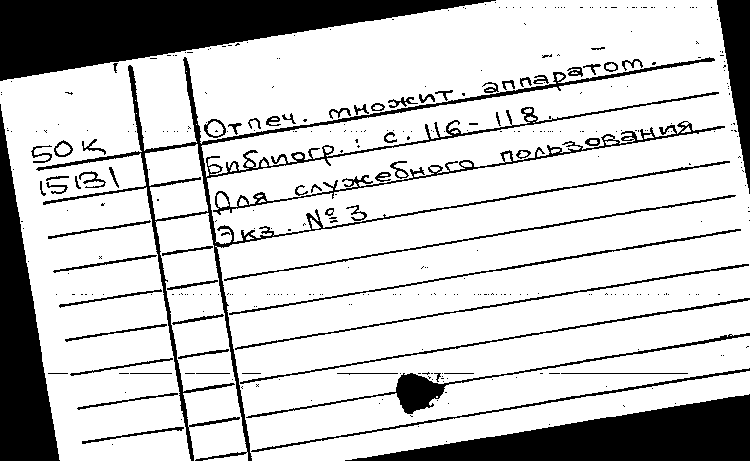 Отпеч. множит. аппаратом.
50 к Библиогр.: с. 116-118.
15131 Для служебного пользования
Экз. № 3.